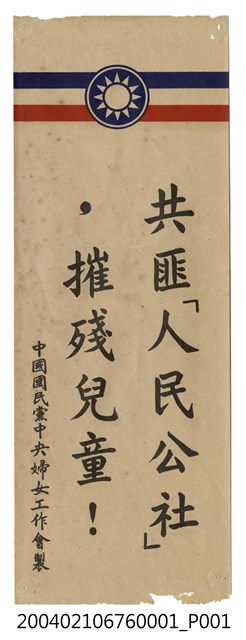 共匪「人民公社」
，摧殘兒童！
中國國民黨中央婦女工作會製
200402106760001_P001